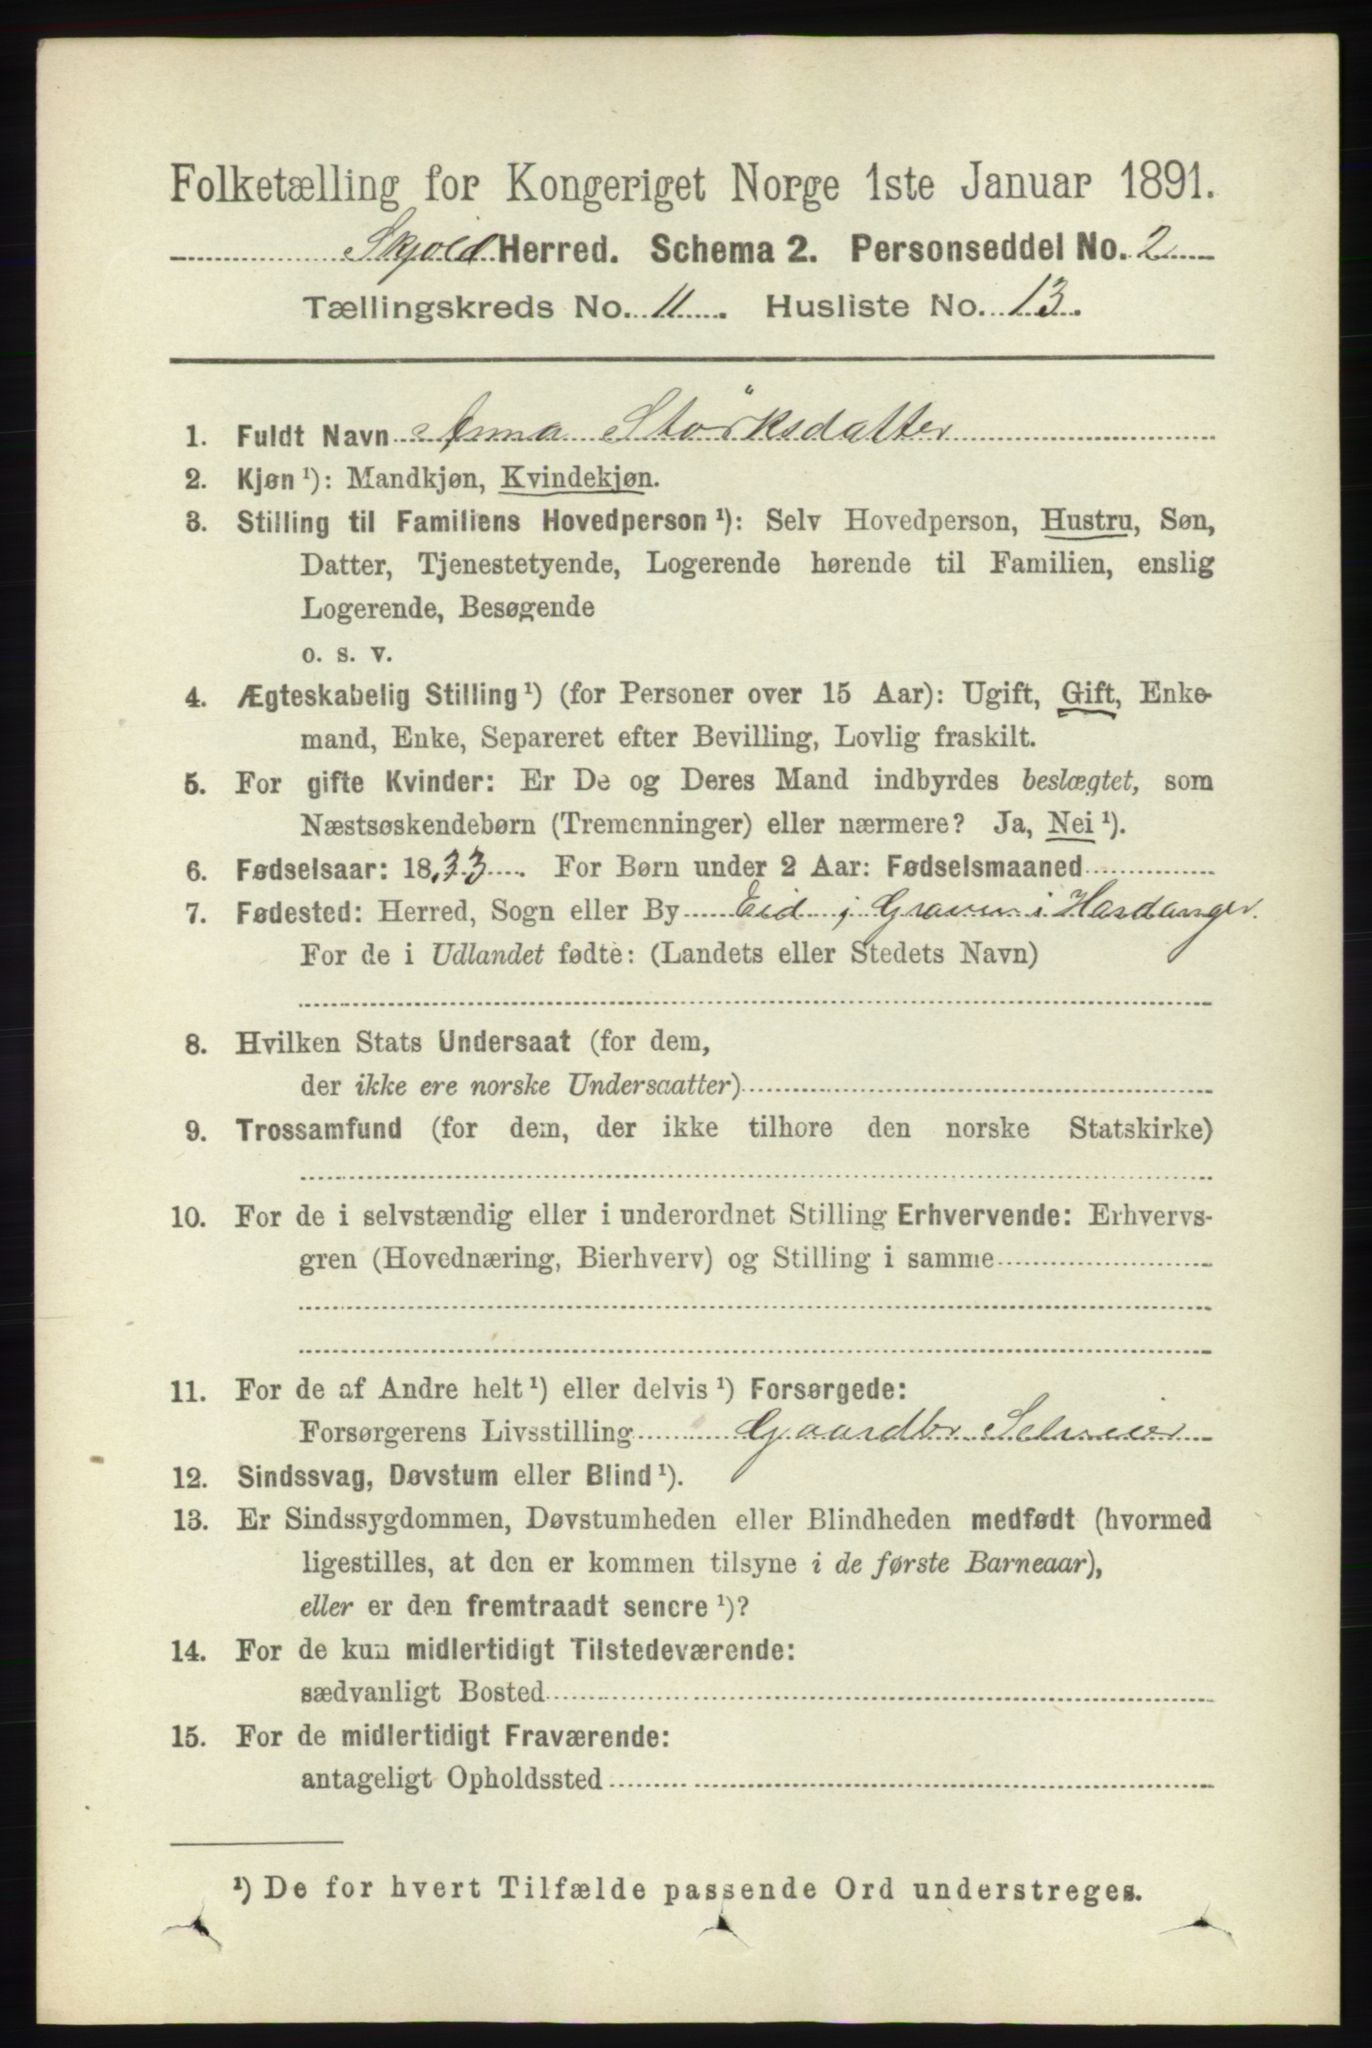 Folketælling for Kongeriget Norge 1ste Januar 1891.
Skjold Herred. Schema 2. Personseddel No. 2
Tællingskreds No. 11. Husliste No. 13.
1. Fuldt Navn Anna Störksdatter
2. Kjøn ¹): Mandkjøn, Kvindekjøn.
3. Stilling til Familiens Hovedperson ¹): Selv Hovedperson, Hustru, Søn,
Datter, Tjenestetyende, Logerende hørende til Familien, enslig
Logerende, Besøgende
o. s. v.
4. Ægteskabelig Stilling ¹) (for Personer over 15 Aar): Ugift, Gift, Enke-
mand, Enke, Separeret efter Bevilling, Lovlig fraskilt.
5. For gifte Kvinder: Er De og Deres Mand indbyrdes beslægtet, som
Næstsøskendebørn (Tremenninger) eller nærmere? Ja, Nei ¹).
6. Fødselsaar: 1833. For Børn under 2 Aar: Fødselsmaaned
7. Fødested: Herred, Sogn eller By Eid i Graven i Hardanger.
For de i Udlandet fødte: (Landets eller Stedets Navn)
8. Hvilken Stats Undersaat (for dem,
der ikke ere norske Undersaatter)
9. Trossamfund (for dem, der ikke tilhøre den norske Statskirke)
10. For de i selvstændig eller i underordnet Stilling Erhvervende: Erhvervs-
gren (Hovednæring, Bierhverv) og Stilling i samme
11. For de af Andre helt ¹) eller delvis ¹) Forsørgede:
Forsørgerens Livsstilling Gaardbr Selveier
12. Sindssvag, Døvstum eller Blind ¹).
13. Er Sindssygdommen, Døvstumheden eller Blindheden medfødt (hvormed
ligestilles, at den er kommen tilsyne i de første Barneaar),
eller er den fremtraadt senere ¹)?
14. For de kun midlertidigt Tilstedeværende:
sædvanligt Bosted
15. For de midlertidigt Fraværende:
antageligt Opholdssted
¹) De for hvert Tilfælde passende Ord understreges.